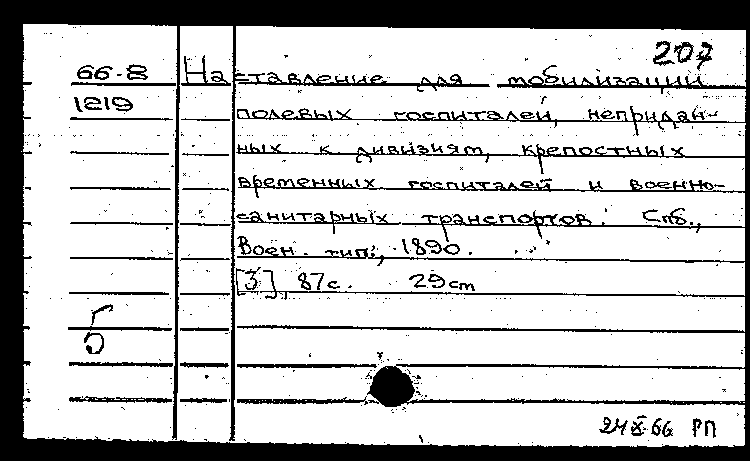 207
66-8 Наставление для мобилизации
1219 полевых госпиталей, непридан-
ных к дивизиям, крепостных
временных госпиталей и военно-
санитарных транспортов. Спб.,
Воен. тип., 1890.
[3], 87с. 29см
Б
24 X 66 РП